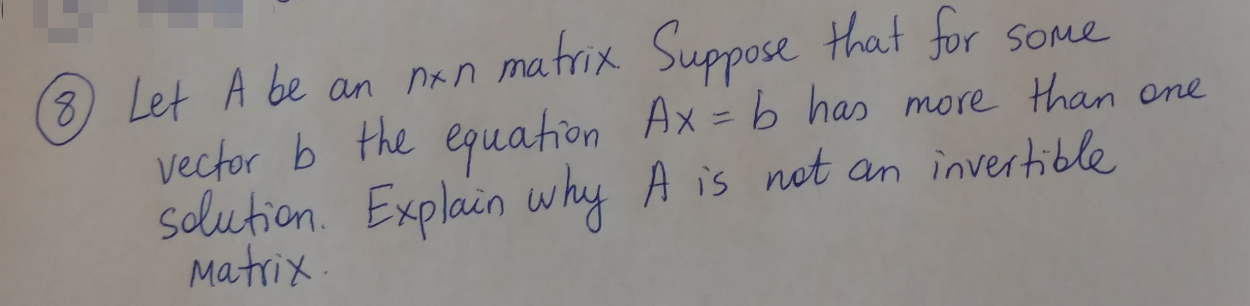 ⑧ Let A be an n×n matrix. Suppose that for some
vector b the equation Ax = b has more than one
solution. Explain why A is not an invertible
matrix.